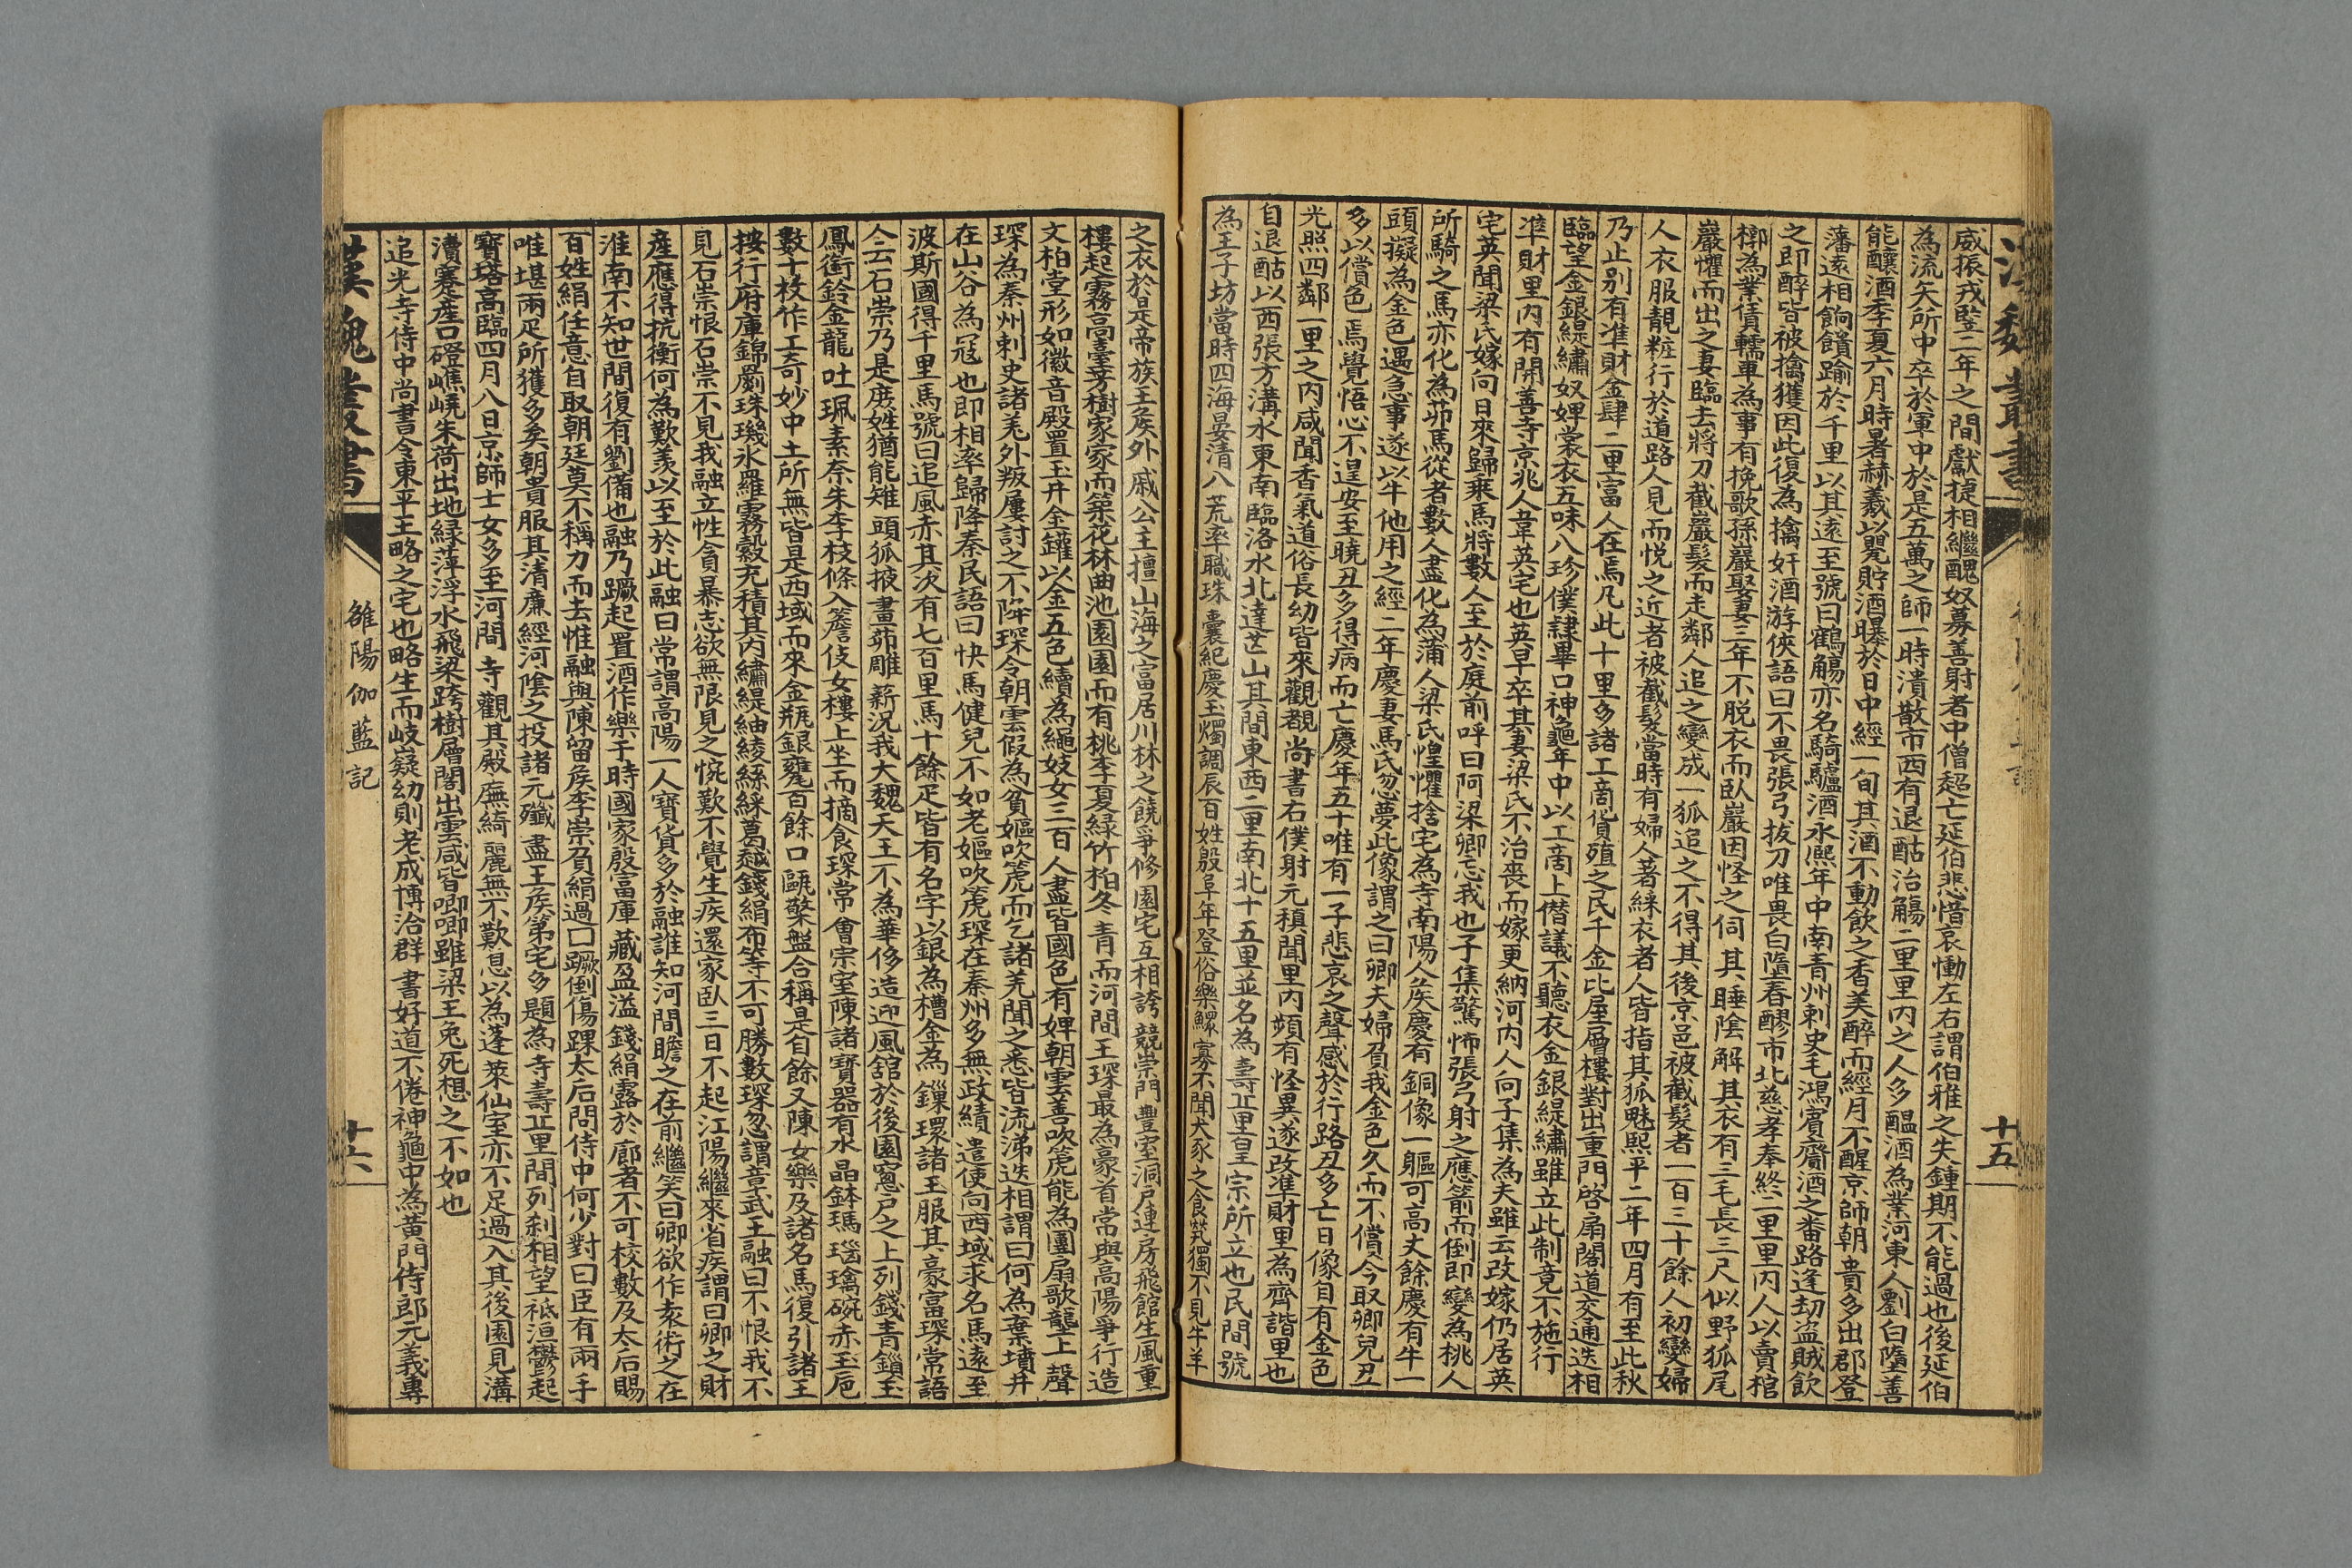 漢魏叢書
十五
威振戎竪二年之間獻捷相繼醜奴募善射者中僧超亡延伯悲惜哀慟左右謂伯雅之失鍾期不能過也後延伯
為流矢所中卒於軍中於是五萬之師一時潰散市西有退酤治觴二里里內之人多醞酒為業河東人劉白墮善
能釀酒季夏六月時暑赫羲以甖貯酒曝於日中經一旬其酒不動飲之香美醉而經月不醒京師朝貴多出郡登
藩遠相餉饋踰於千里以其遠至號曰鶴觴亦名騎驢酒永熙年中南青州刺史毛鴻賓齎酒之番路逢刧盜賊飲
之即醉皆被擒獲因此復為擒奸酒游俠語曰不畏張弓拔刀唯畏白墮春醪市北慈孝奉終二里里內人以賣棺
槨為業賃轜車為事有挽歌孫巖娶妻三年不脫衣而臥巖因怪之伺其睡陰解其衣有三毛長三尺似野狐尾
巖懼而出之妻臨去將刀截巖髮而走鄰人追之變成一狐追之不得其後京邑被截髮者一百三十餘人初變婦
人衣服靚粧行於道路人見而悅之近者被截髮當時有婦人著綵衣者人皆指其狐魅熙平二年四月有至此秋
乃止别有準財金肆二里富人在焉凡此十里多諸工商貨殖之民千金比屋層樓對出重門啓扇閣道交通迭相
臨望金銀緹繡奴婢裳衣五味八珍僕隸畢口神龜年中以工商上僭議不聽衣金銀緹繡雖立此制竟不施行
準財里內有開善寺京兆人韋英宅也英早卒其妻梁氏不治喪而嫁更納河內人向子集為夫雖云改嫁仍居英
宅英聞梁氏嫁向日來歸乘馬將數人至於庭前呼曰阿梁卿忘我也子集驚怖張弓射之應箭而倒即變為桃人
所騎之馬亦化為茆馬從者數人盡化為蒲人梁氏惶懼捨宅為寺南陽人矦慶有銅像一軀可高丈餘慶有牛一
頭擬為金色遇急事遂以牛他用之經二年慶妻馬氏忽夢此像謂之曰卿夫婦負我金色久而不償今取卿兒丑
多以償色焉覺悟心不遑安至曉丑多得病而亡慶年五十唯有一子悲哀之聲感於行路丑多亡日像自有金色
光照四鄰一里之內咸聞香氣道俗長幼皆來觀覩尚書右僕射元稹聞里內頻有怪異遂改準財里為齊諧里也
自退酤以西張方溝水東南臨洛水北達芒山其間東西二里南北十五里並名為壽丘里皇宗所立也民間號
為王子坊當時四海晏清八荒率職珠囊紀慶玉燭調辰百姓殷阜年登俗樂鰥寡不聞犬豕之食煢獨不見牛羊
之衣於是帝族王矦外戚公主擅山海之富居川林之饒爭修園宅互相誇競崇門豐室洞戶連房飛館生風重
樓起霧高臺芳樹家家而築花林曲池園園而有桃李夏緑竹柏冬青而河間王琛最為豪首常與高陽爭行造
文柏堂形如徽音殿置玉井金罐以金五色績為繩妓女三百人盡皆國色有婢朝雲善吹箎能為團扇歌壟上聲
琛為秦州刺史諸羌外叛屢討之不降琛令朝雲假為貧嫗吹箎而乞諸羌聞之悉皆流涕迭相謂曰何為棄墳井
在山谷為冦也即相率歸降秦民語曰快馬健兒不如老嫗吹箎琛在秦州多無政績遣使向西域求名馬遠至
波斯國得千里馬號曰追風赤其次有七百里馬十餘疋皆有名字以銀為槽金為鏁環諸王服其豪富琛常語
人云石崇乃是庶姓猶能雉頭狐掖畫茆雕薪况我大魏天王不為華侈造迎風舘於後園窻戶之上列錢青鎻玉
鳳銜鈴金龍吐珮素奈朱李枝條入簷伎女樓上坐而摘食琛常會宗室陳諸寶器有水晶鉢瑪瑙璃碗赤玉巵
數十枚作工奇妙中土所無皆是西域而來金瓶銀甕百餘口甌檠盤合稱是自餘又陳女樂及諸名馬復引諸王
按行府庫錦罽珠璣氷羅霧縠充積其內繡緹紬綾絲綵葛越錢絹布等不可勝數琛忽謂章武王融曰不恨我不
見石崇恨石崇不見我融立性貪暴志欲無限見之惋歎不覺生疾還家臥三日不起江陽繼來省疾謂曰卿之財
産應得抗衡何為歎羨以至於此融曰常謂高陽一人寶貨多於融誰知河間瞻之在前繼笑曰卿欲作袁術之在
淮南不知世間復有劉備也融乃蹶起置酒作樂于時國家殷富庫藏盈溢錢絹露於廊者不可校數及太后賜
百姓絹任意自取朝廷莫不稱力而去惟融與陳留矦李崇負絹過口蹶倒傷踝太后問侍中何少對曰臣有兩手
唯堪兩疋所獲多矣朝貴服其清廉經河陰之役諸元殲盡王矦第宅多題為寺壽丘里間列刹相望祇洹鬱起
寶塔高臨四月八日京師士女多至河間寺觀其殿廡綺麗無不歎息以為蓬萊仙室亦不足過入其後園見溝
瀆蹇產口磴嶕嶢朱荷出地緑萍浮水飛梁跨樹層閣出雲咸皆唧唧雖梁王兔死想之不如也
追光寺侍中尚書令東平王略之宅也略生而岐嶷幼則老成博洽群書好道不倦神龜中為黃門侍郎元義專
漢魏叢書
雒陽伽藍記
十六